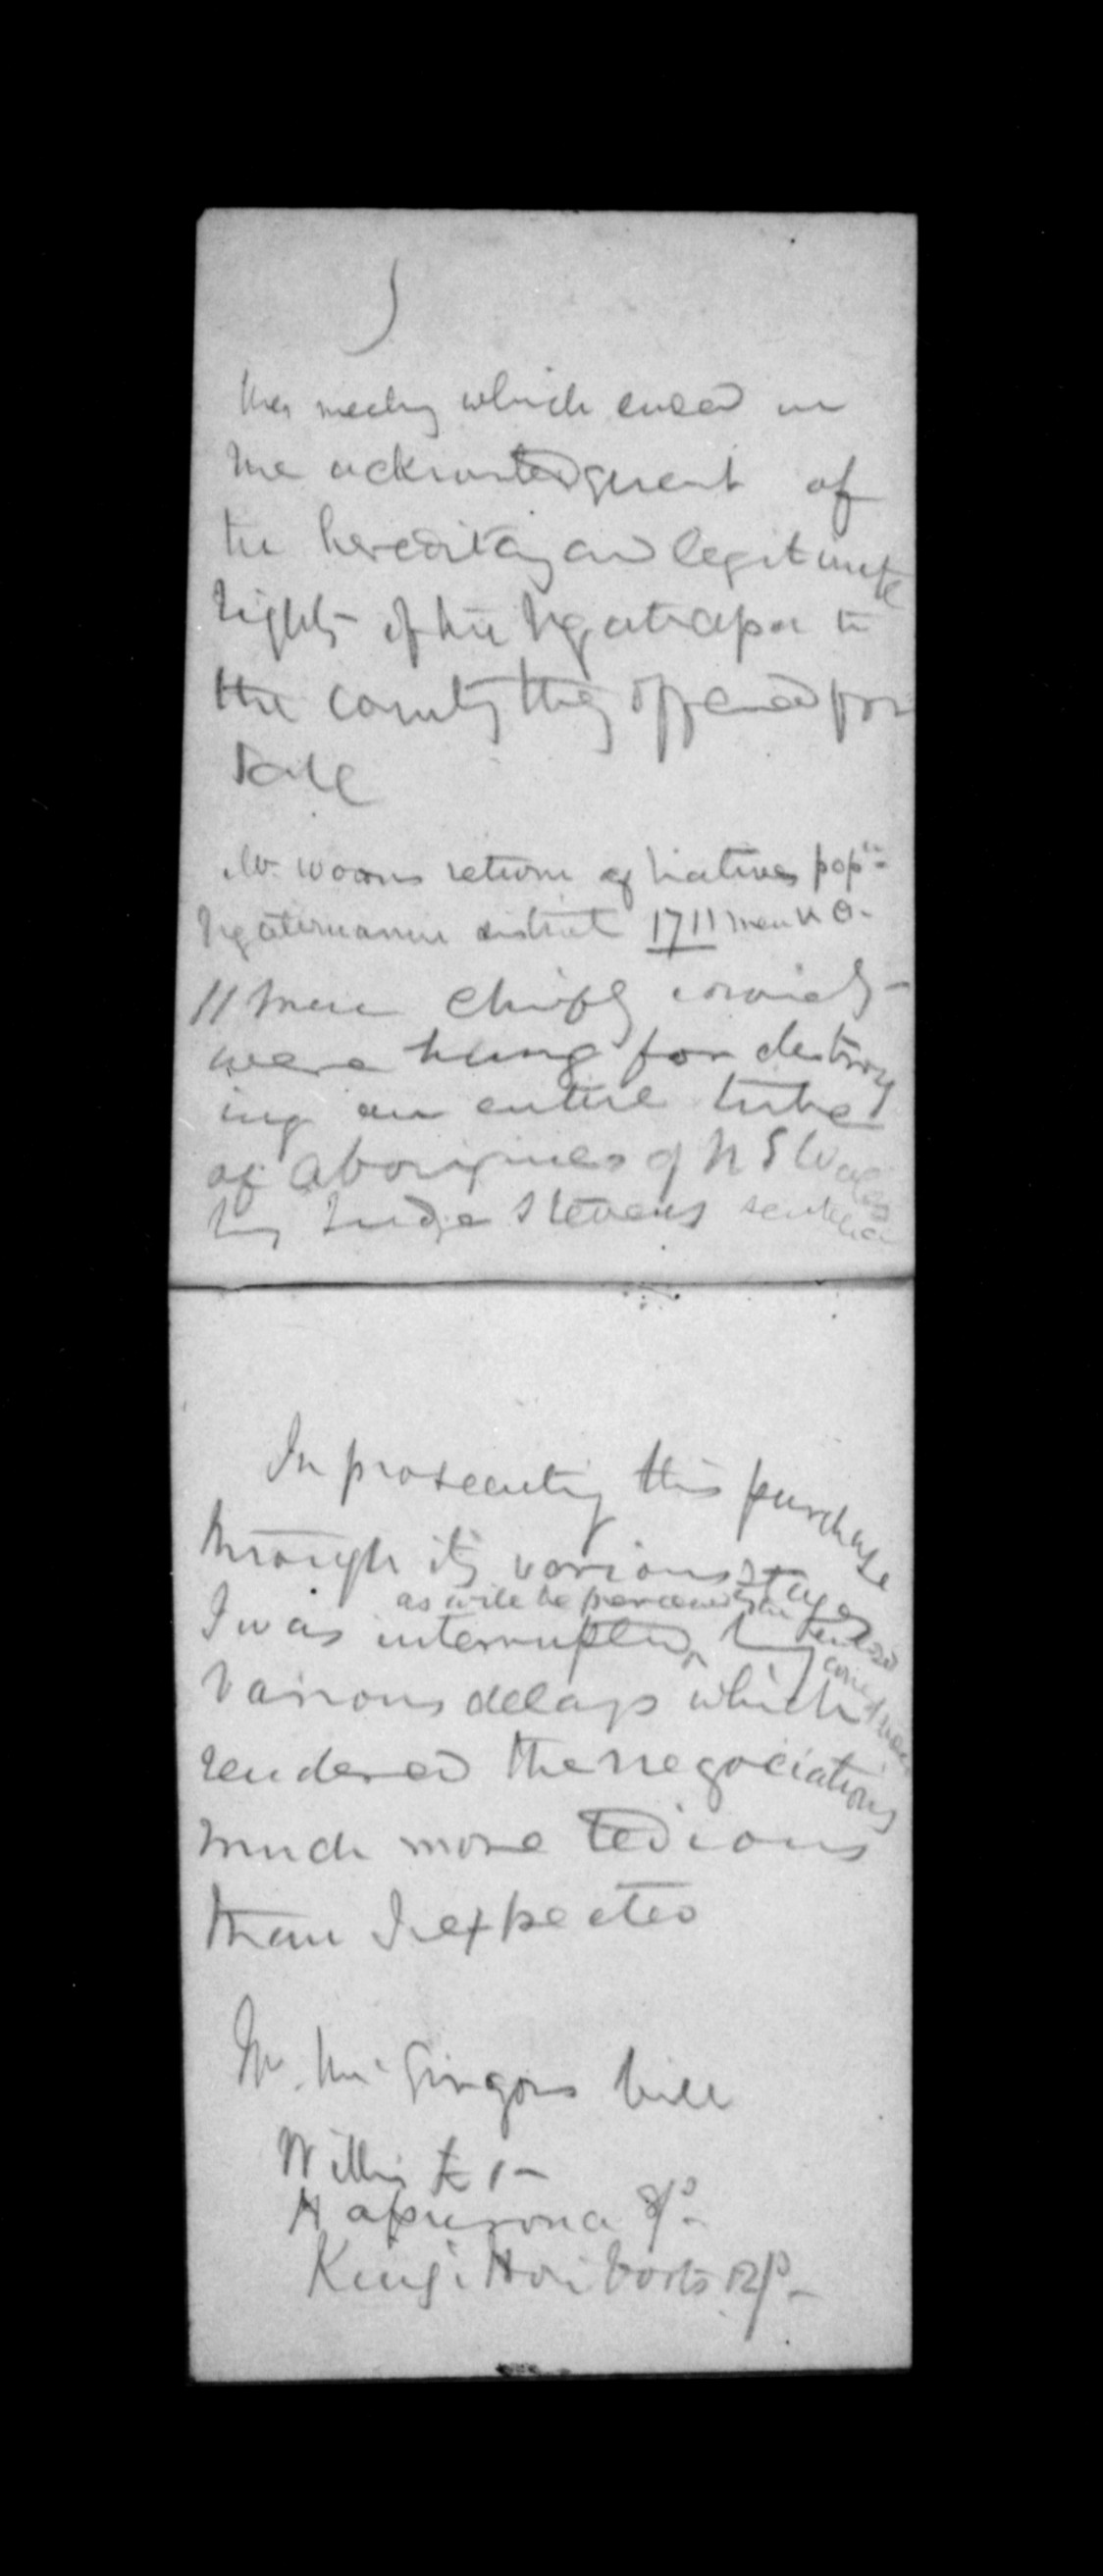 this meeting which ended in
the acknowledgment of
the hereditary and legitimate
rights of the Ngatiapa to
the country they offered for
Sale
Mr Woons return of Natives popn
Ngateruanui district 1711 men
11 men chiefly convicts
were hung for destroy
ing an entire tribe
of aborigines of N S Wales
by Judge Stevens sentence
In prosecuting this purchase
through its various stages
as will be perceived by the enclosed
I was interrupted by
various delays which
rendered the negociations
much more tedious
than I expected
Mr McGregors bill
Willis £1-
Hapurona 8/-
Kingi Hori boots 12/-